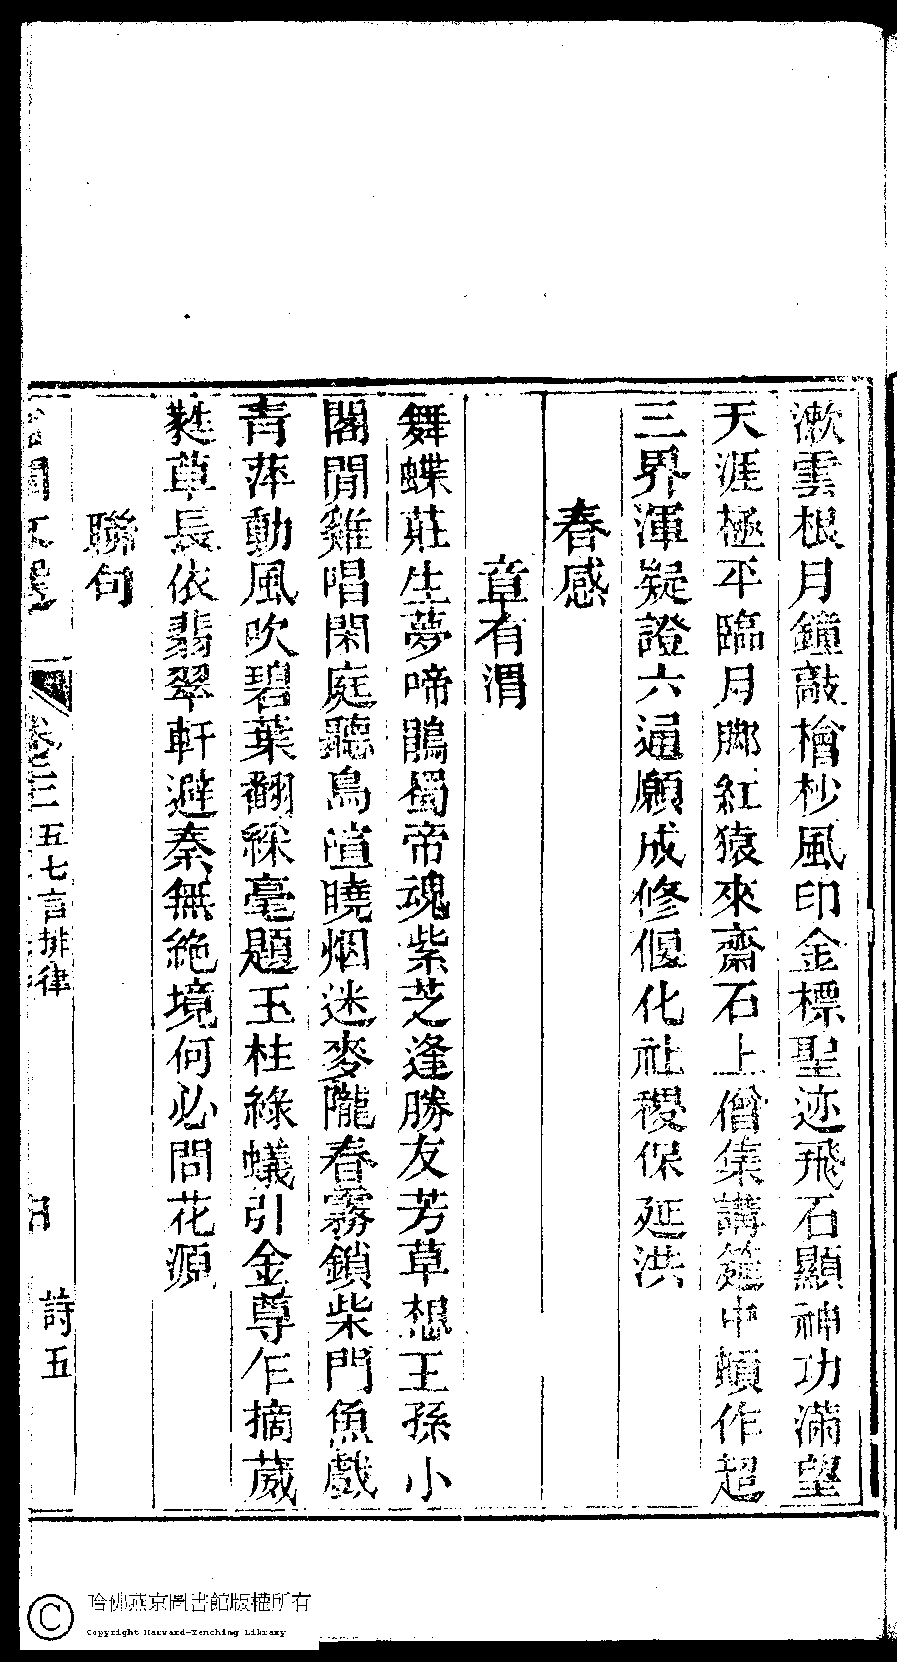 漱雲根月鐘敲檜杪風印金標聖迹飛石顯神功滿望
天涯極平臨月脚紅猿來齋石上僧集講筵中頓作超
三界渾疑證六通願成修偃化社稷保延洪
春感
章有渭
舞蝶莊生夢啼鵑蜀帝魂紫芝逢勝友芳草想王孫小
閣閒雞唱閑庭聽鳥喧曉烟迷麥隴春霧鎖柴門魚戲
青萍動風吹碧葉翻綵毫題玉柱綠蟻引金尊乍摘葳
蕤草長依翡翠軒避秦無絶境何必問花源
聯句
卷三 五七言排律
詩五
哈佛燕京圖書館版權所有
Copyright Harvard-Yenching Library